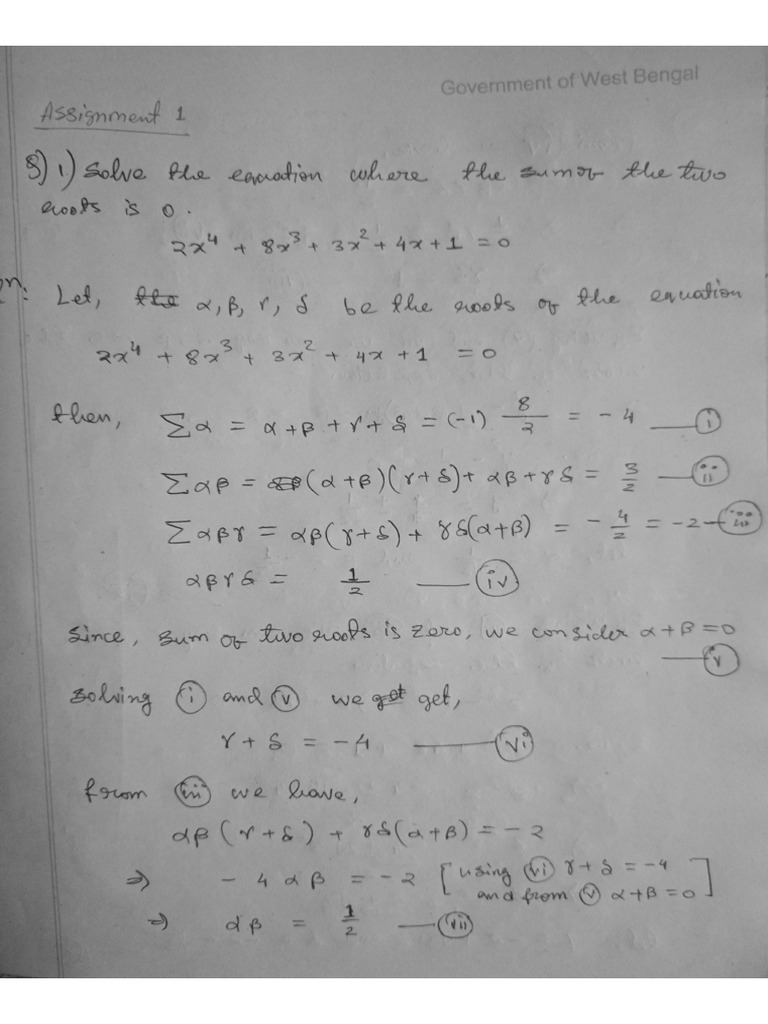 Government of West Bengal
Assignment 1
8) 1) Solve the equation where the sum of the two
roots is 0.
2x⁴ + 8x³ + 3x² + 4x + 1 = 0
Let, α, β, γ, δ be the roots of the equation
2x⁴ + 8x³ + 3x² + 4x + 1 = 0
then, Σα = α + β + γ + δ = (-1) 8/2 = -4 — (i)
Σαβ = (α + β)(γ + δ) + αβ + γδ = 3/2 — (ii)
Σαβγ = αβ(γ + δ) + γδ(α + β) = -4/2 = -2 — (iii)
αβγδ = 1/2 — (iv)
Since, sum of two roots is zero, we consider α + β = 0
— (v)
Solving (i) and (v) we get,
γ + δ = -4 — (vi)
from (iii) we have,
αβ(γ + δ) + γδ(α + β) = -2
⇒ -4αβ = -2 [using (vi) γ + δ = -4
and from (v) α + β = 0]
⇒ αβ = 1/2 — (vii)